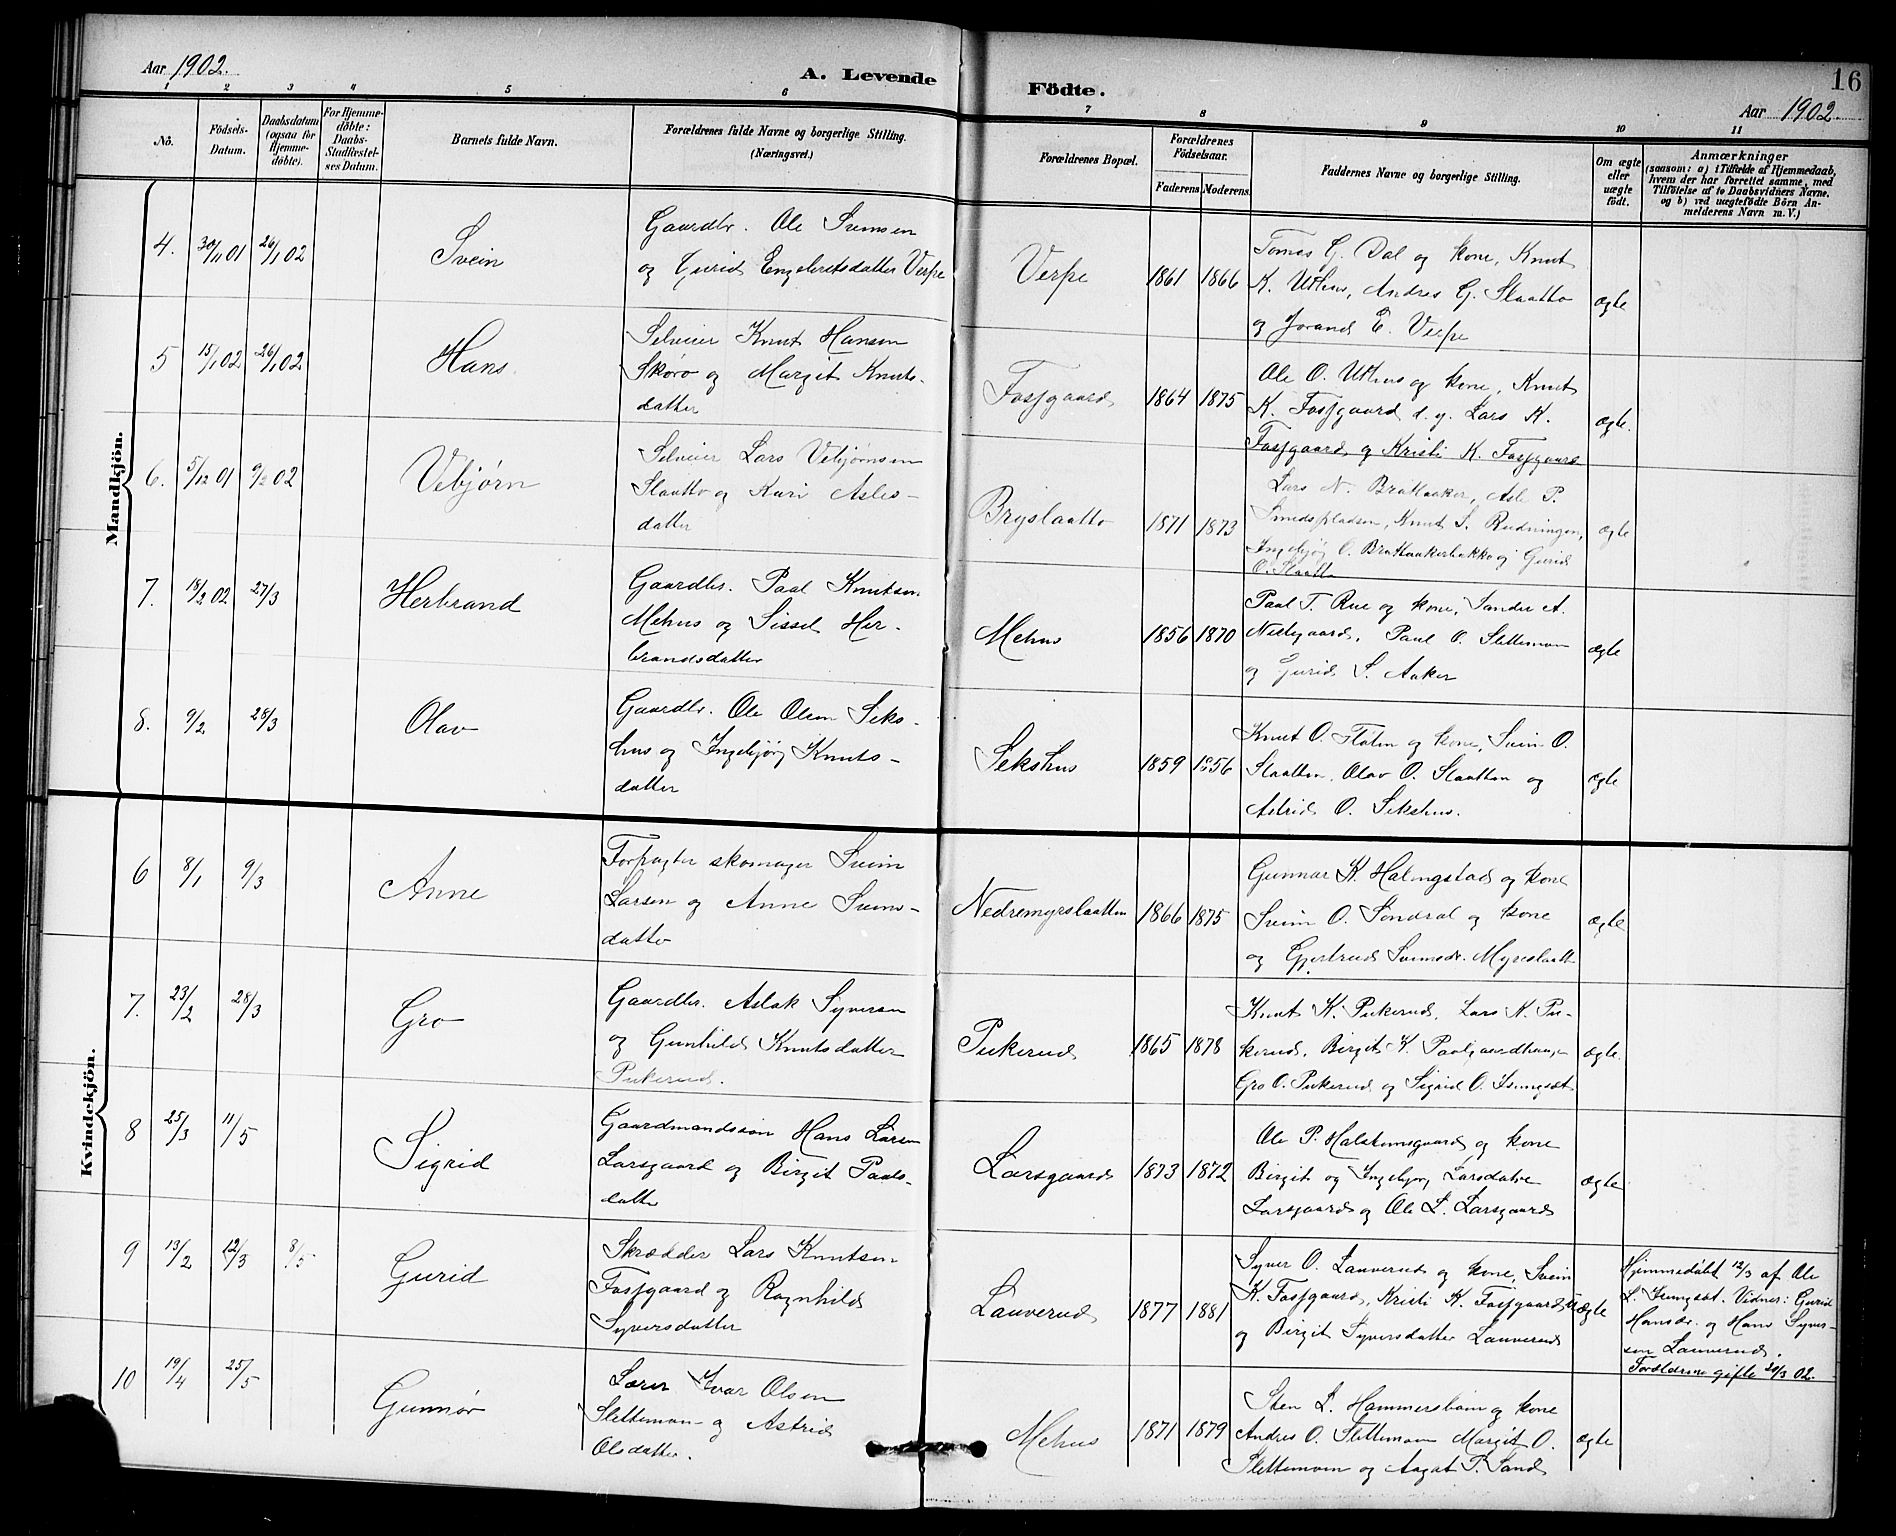 Aar 1902.
A. Levende
Födte.
16
Aar 1902.
1 2 3 4 5 6 7 8 9 10 11
No.
Födsels-
Datum.
Daabsdatum
(ogsaa for
Hjemme-
döbte).
For Hjemme-
döbte:
Daabs-
Stadfæstel-
ses Datum.
Barnets fulde Navn.
Forældrenes fulde Navne og borgerlige Stilling.
(Næringsvei.)
Forældrenes Bopæl.
Forældrenes
Födselsaar.
Faderens. Moderens.
Faddernes Navne og borgerlige Stilling.
Om ægte
eller
uægte
født.
Anmærkninger
(saasom: a) i Tilfælde af Hjemmedaab,
hvem der har forrettet samme, med
Tilföielse af to Daabsvidners Navne.
og b) ved uægtefödte Börn An-
melderens Navn m. V.)
Mandkjön.
4. 30/11 01 26/1 02 Svein
Gaardbr. Ole Svensen
og Gurid Engebretsdatter Verpe
Verpe 1861 1866
Tomas G. Dal og kone, Knut
K. Uthus, Andres G. Slaatto
og Jorand E. Verpe
ægte
5 15/1 02 26/1 02 Hans
Selveier Knut Hansen
Skoro og Margit Knuts-
datter
Fosgaard 1864 1875
Ole O. Uthus og kone, Knut
K. Fosgaard d. y. Lars K.
Fosgaard og Kristi K. Fosgaard
ægte.
6. 5/12 01 9/2 02 Vebjørn
Selveier Lars Vebjørnsen
Slaatto og Kari Asles-
datter
Bryslaatto 1871 1873
Lars N. Brattaaker, Asle P.
Smedspladsen, Knut S. Rudningen,
Ingebjør O. Brattaakerbakke og Gurid
O. Slaatto
ægte
7. 18/2 02 27/3 Herbrand
Gaardbr. Paal Knutsen
Mehus og Sissel Her-
brandsdatter
Mehus 1856 1870
Paal T. Rue og kone, Sander A.
Nestegaard, Paul O. Slettemoen
og Gurid S. Aaker
ægte
8. 9/2 28/3 Olav
Gaardbr. Ole Olsen Seks-
hus og Ingebjørg Knuts-
datter
Sekshus 1859 1856
Knut O. Fløten og kone, Svein O.
Slaatten, Olav O. Slaatten og
Astrid O. Sekshus.
ægte
Kvindekjön.
6 8/1 9/3 Anne
Forpagter skomager Svein
Larsen og Anne Sveins-
datter
Nedremyrslaatten 1866 1875
Gunnar K. Halingstad og kone
Svein O. Søndral og kone
og Gjertrud Sveinsdr. Myreslaatt
ægte
7. 23/2 28/3 Gro
Gaardbr. Aslak Syversen
og Gunhild Knutsdatter
Pukerud.
Pukerud 1865 1878
Knut K. Pukerud, Lars N. Pu-
kerud, Birgit K. Paalgaardhaugen
Gro O. Pukerud og Sigrid O. Isungsæt
ægte.
8 25/3 11/5 Sigrid
Gaardmandssøn Hans Larsen
Larsgaard og Birgit Paals-
datter
Larsgaard 1873 1872
Ole P. Halstensgaard og kone
Birgit og Ingebjørg Larsdatre
Larsgaard og Ole L. Larsgaard
ægte
9 13/2 12/3 8/5 Gurid
Skrædder Lars Knutsen
Fosgaard og Ragnhild
Syversdatter
Lauverud 1877 1881
Syver O. Lauverud og kone, Svein
K. Fosgaard, Kristi K. Fosgaard
og Birgit Syversdatter Lauverud
ægte
Hjemmedøbt 12/3 af Ole
L. Isungsæt. Vidner: Gurid
Hansdr. og Hans Syver-
sen Lauverud.
Forældrene gifte 30/3 02.
10 19/4 25/5 Gunnør
Lærer Ivar Olsen
Slettemoen og Astrid
Olsdatter.
Mehus 1871 1879
Sten L. Hammersbøin og kone
Andres O. Slettemoen Margit O.
Slettemoen og Aagot P. Sand
ægte